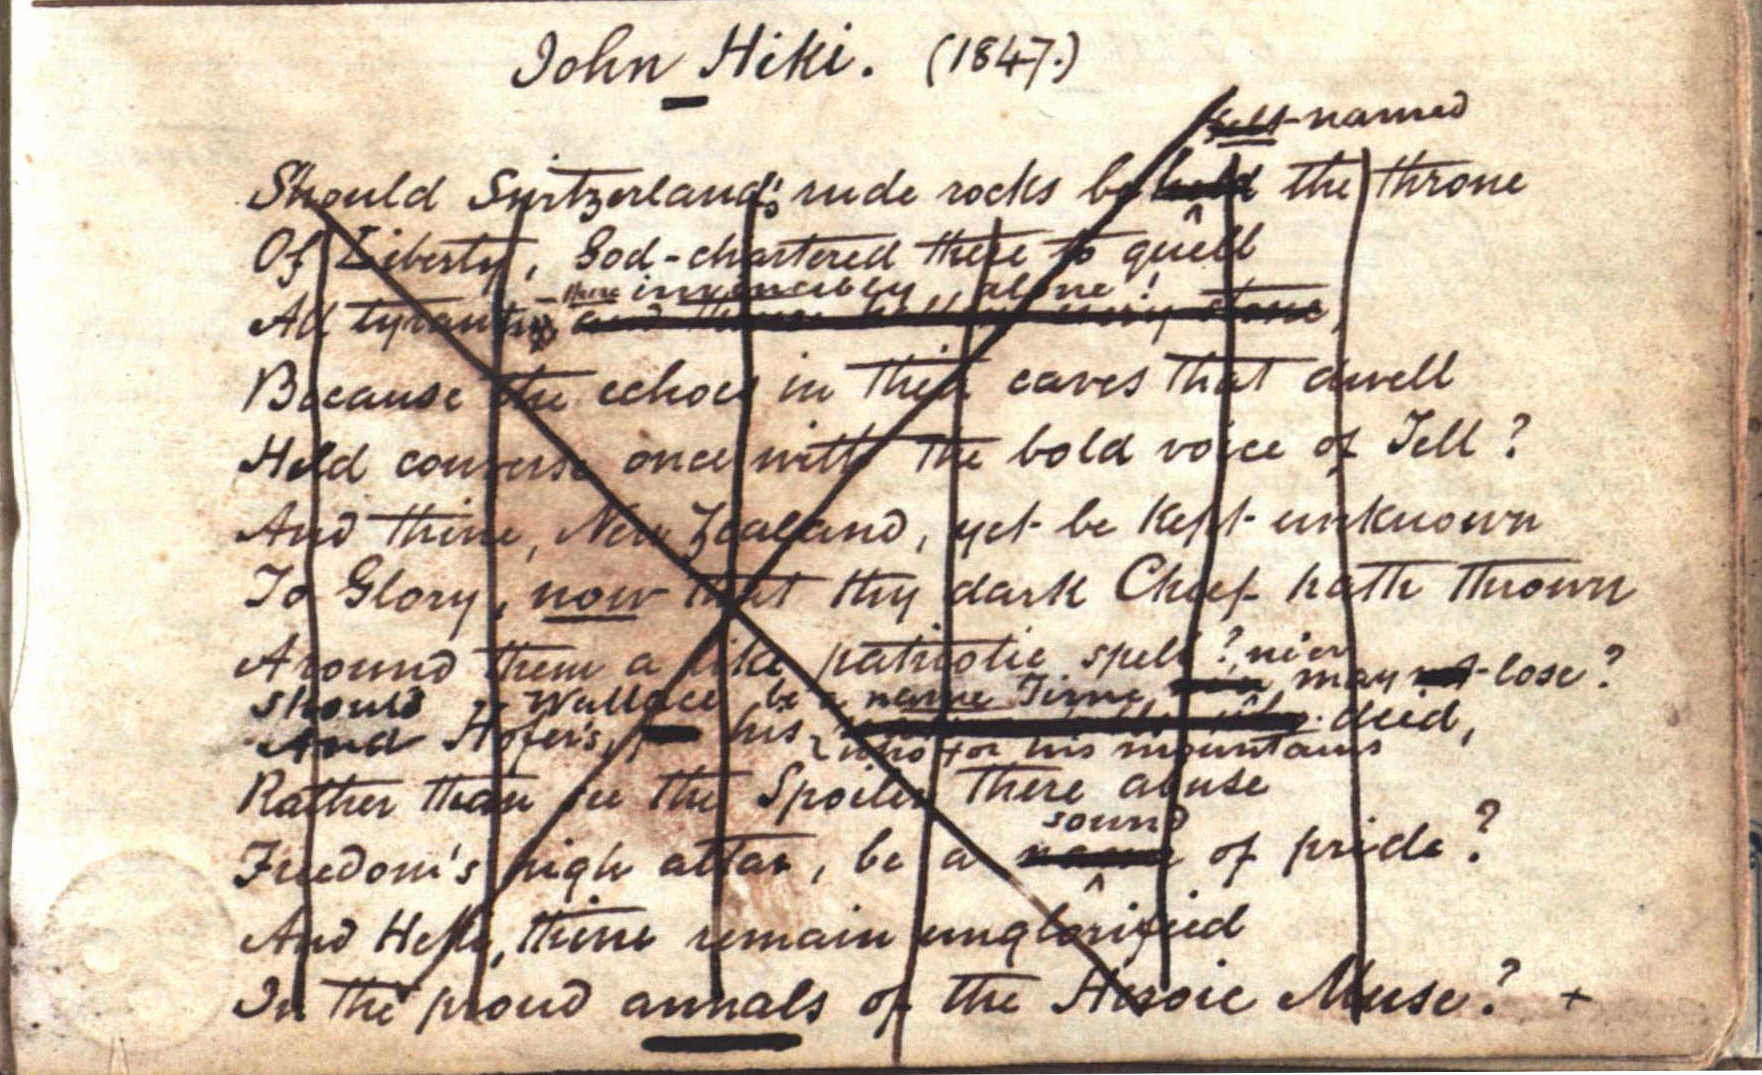 John Hiki. (1847.)
self-named
Should Switzerland's rude rocks be held the throne
Of Liberty, God-chartered there to quell
there invincibly, alone!
All tyrants
Because the echoes in their caves that dwell
Held converse once with the bold voice of Tell?
And thine, New Zealand, yet be kept unknown
To Glory, now that thy dark Chief hath thrown
Around them a like patriotic spell?
ne'er
Should Wallace be a name Time may not lose?
And Hofer's, his died,
who for his mountains
Rather than see the Spoiler there abuse
sound
Freedom's high altar, be a name of pride?
And Heki, thine remain unglorified
In the proud annals of the Heroic Muse? +